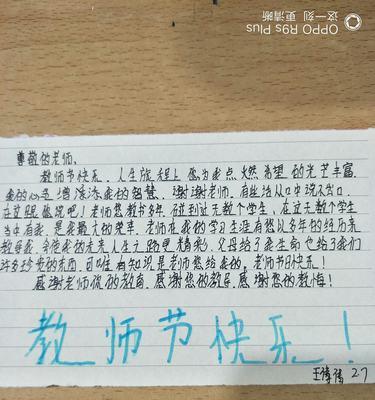 OPPO R9s Plus
这一刻 更清晰
尊敬的老师.
教师节快乐. 人生旅程上 您为我点燃希望的光芒丰富
我的心灵 增添添我的智慧. 谢谢老师. 有些话从口中说不出口.
在这跟您说吧！老师您教书多年. 碰到过无数个学生. 在这无数个学生
当中有我. 是我最大的荣幸. 老师在我的学习生涯有您以多年的经历来
教导我. 令使我的未来人生之路更精彩. 父母给了我生命也给了我们
许多珍贵的东西. 可唯有知识是老师您给我的. 老师节日快乐！
感谢老师您的教育. 感谢您的教导. 感谢您的教悔！
教师节快乐！
27